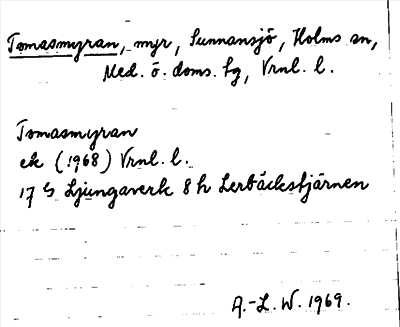 Tomasmyran, myr, Sunnansjö, Holms sn,
Med. ö. doms. sg, Vrnl. l.
Tomasmyran
ek (1968) Vrnl. l.
17 G Ljungaverk 8 h Lerbäckstjärnen
A.-L. W. 1969.